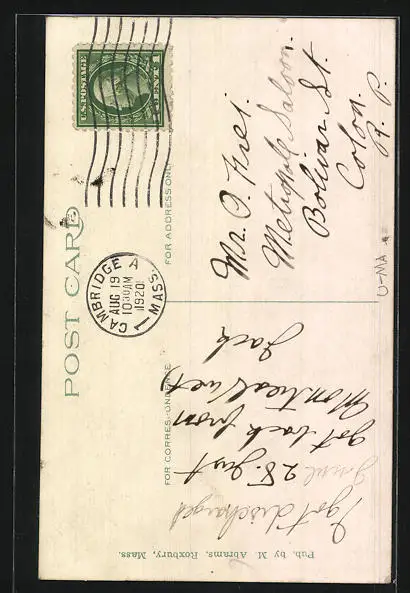 POST CARD
FOR CORRESPONDENCE
FOR ADDRESS ONLY
U.S. POSTAGE
1 CENT 1
CAMBRIDGE A
AUG 19
10 30 AM
1920
MASS.
1
Mr. O. Frei.
Metropole Saloon.
Bolivar St.
Colon.
R. P.
U-MA
I got discharged
28. Just
got back from
Montreal (wet)
Jack
Pub. by M. Abrams, Roxbury, Mass.